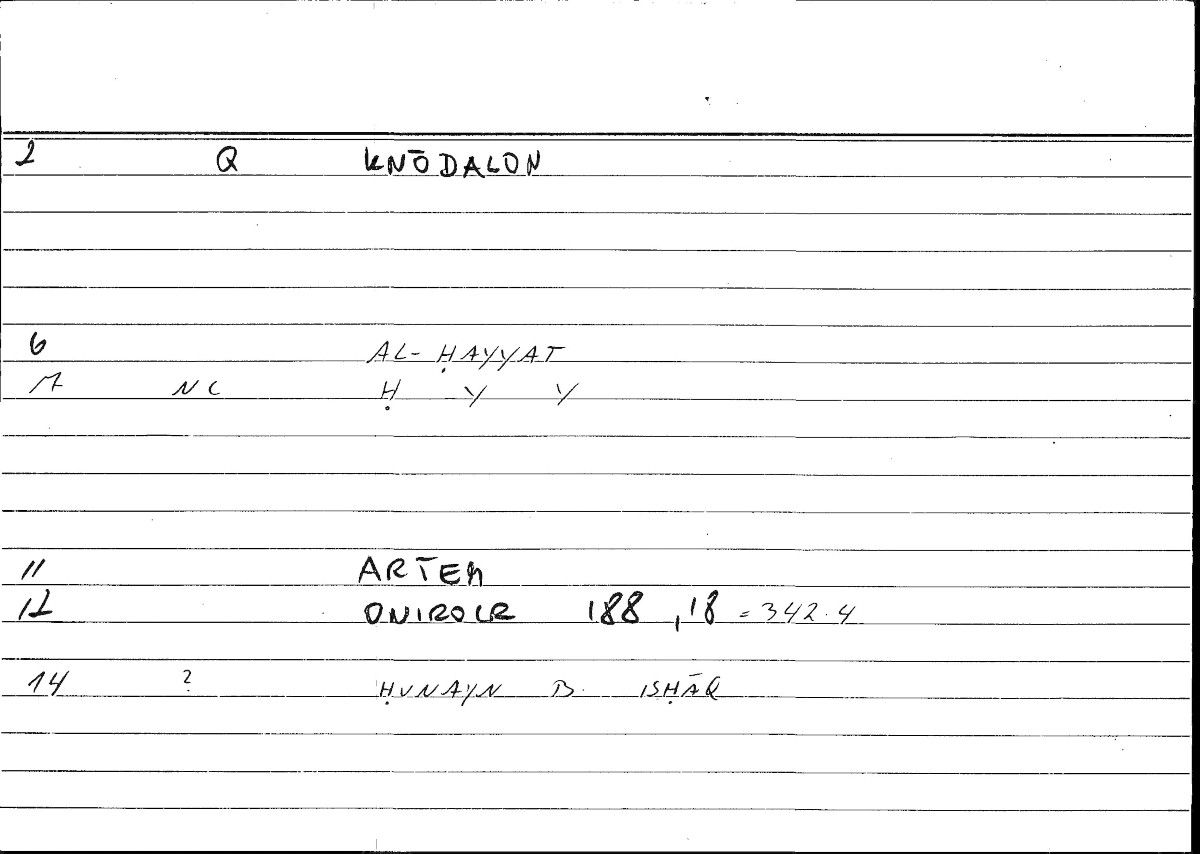 2 Q KNŌDALON
6 AL-ḤAYYAT
7 NC Ḥ Y Y
11 ARTEM
12 ONIROCR 188,18 = 342.4
14 ? ḤUNAYN B. ISḤĀQ